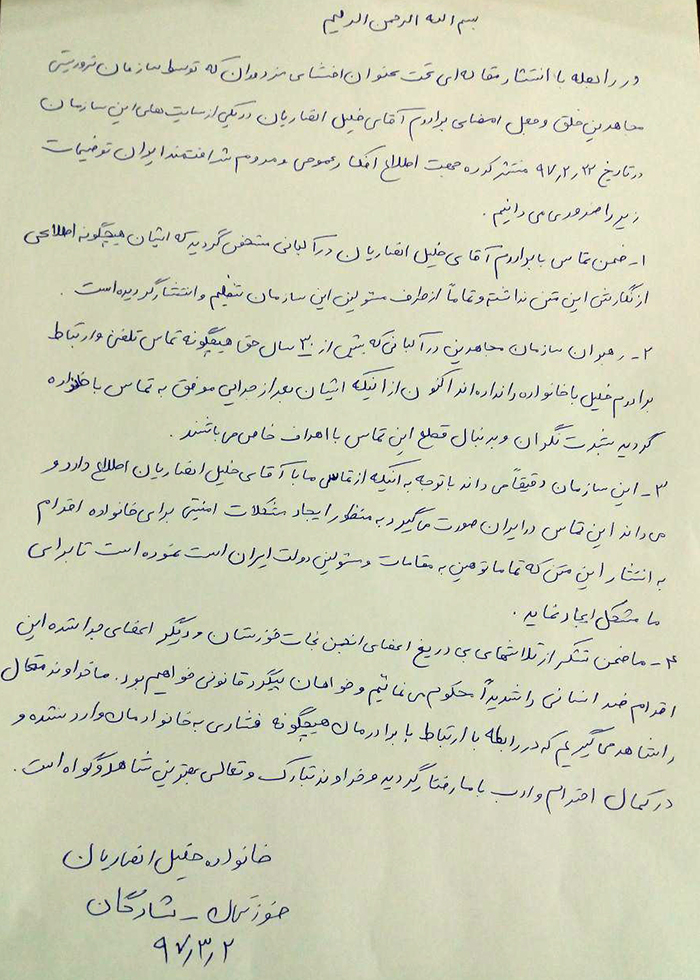 بسم الله الرحمن الرحیم
در رابطه با انتشار مقاله ای تحت عنوان افشای مزدوران که توسط سازمان تروریستی
مجاهدین خلق و جعل امضای برادرم آقای خلیل انصاریان در یکی از سایت های این سازمان
در تاریخ ۹۷٫۲٫۲۲ منتشر کرده جهت اطلاع افکار عمومی و مردم شرافتمند ایران توضیحات
زیر را ضروری می دانیم .
۱- ضمن تماس با برادرم آقای خلیل انصاریان در آلبانی مشخص گردید که ایشان هیچگونه اطلاعی
از نگارش این متن نداشته و تماماً از طرف مسئولین این سازمان تنظیم و انتشار گردیده است .
۲- رهبران سازمان مجاهدین در آلبانی که بیش از ۳۰ سال حق هیچگونه تماس تلفنی و ارتباط
برادرم خلیل با خانواده را نداده اند اکنون از اینکه ایشان بعد از جدایی موفق به تماس با خانواده
گردید بشدت نگران و بدنبال قطع این تماس با اهداف خاص می باشند .
۳- این سازمان دقیقاً می داند با توجه به اینکه از تماس ما با آقای خلیل انصاریان اطلاع دارد و
می داند این تماس در ایران صورت می گیرد به منظور ایجاد مشکلات امنیتی برای خانواده اقدام
به انتشار این متن که تماما توهین به مقامات و مسئولین دولت ایران است نموده است تا برای
ما مشکل ایجاد نماید .
۴- ما ضمن تشکر از تلاشهای بی دریغ اعضای انجمن نجات خوزستان و دیگر اعضای جدا شده این
اقدام ضد انسانی را شدیداً محکوم می نمائیم و خواهان پیگرد قانونی خواهیم بود. ما خداوند متعال
را شاهد می گیریم که در رابطه با ارتباط با برادرمان هیچگونه فشاری به خانواده مان وارد نشده و
در کمال احترام و ادب با ما رفتار گردید و خداوند تبارک و تعالی بهترین شاهد و گواه است .
خانواده خلیل انصاریان
خوزستان - شادگان
۹۷٫۳٫۲